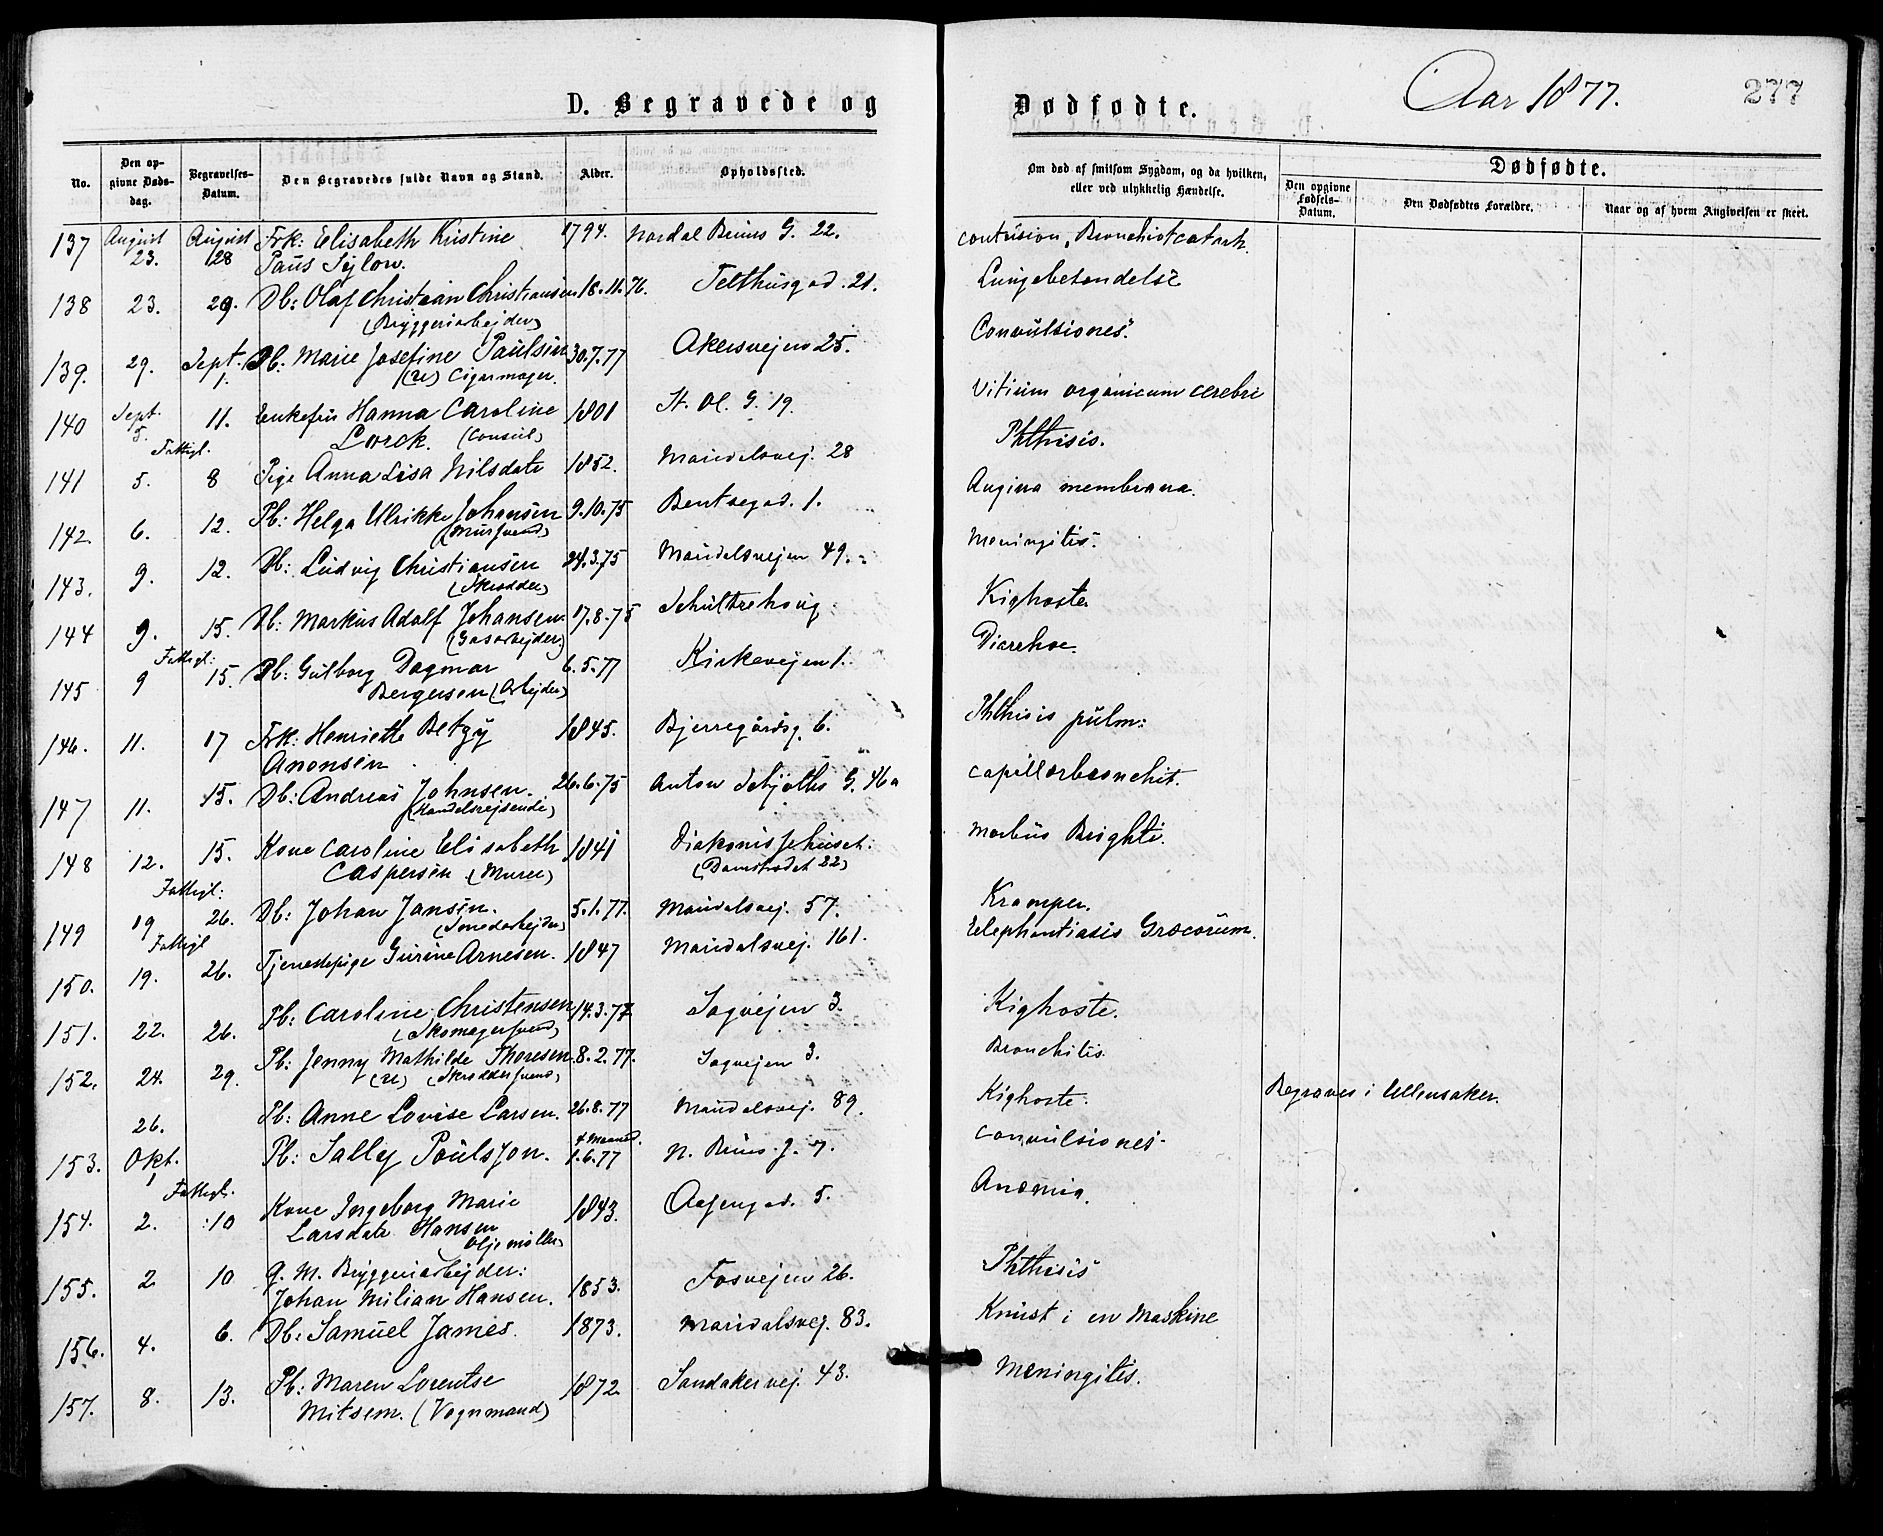 D. Begravede og Dødfødte.
Aar 1877.
277
No.
Den opgivne Dødsdag.
Begravelses-Datum.
Den Begravedes fulde Navn og Stand.
Alder.
Opholdssted.
Om død af smitsom Sygdom, og da hvilken, eller ved ulykkelig Hændelse.
Dødfødte.
Den opgivne Fødsels-Datum.
Den Dødfødtes Forældre.
Naar og af hvem Angivelsen er skeet.
137 August 23. August 28 Frk: Elisabeth Kristine 1794. Nordal Bruns G. 22. Contusion, Bronchiotcatarh.
Paus Sylow.
138 23. 29. Db: Olaf Christian Christiansen 18.11.76. Telthusgad. 21. Lungebetendelse
(Bryggeriarbejder)
139. 29. Sept. 1. Pb: Marie Josefine Paulsen 30.7.77 Akersvejen 25. Convulsiones.
(U) Cigarmager.
140 Sept. 5. 11. Enkefru Hanna Caroline 1801 St. Ol. G. 19. Vitium organicum cerebri
Lorck. (Consul)
Fattigl.
141 5. 8 Pige Anna Lisa Nilsdatr 1852. Maridalsvej. 28 Phthisis.
142. 6. 12. Pb: Helga Ulrikke Johansen 9.10.75 Bentsegad. 1. Angina membrana.
(Mursvend)
143. 9. 12. Db: Ludvig Christiansen 24.3.75 Maridalsvejen 49. Meningitis.
(Skrædder)
144 9. 15. Db: Markus Adolf Johansen 17.8.75 Schultzehoug. Kighoste
(Gasarbejder)
Fattigl:
145 9 15. Pb: Gulborg Dagmar 6.5.77 Kirkevejen 1. Diarrhoe.
Bergersen (Arbejder)
146. 11. 17 Frk: Henriette Betzy 1845. Bjerregårdsg. 6. Phthisis pulm:
Anonsen
147 11. 15. Db: Andreas Johnsen. 26.6.75 Anton Schjøths G. 16a Capillærbronchit.
(Handelsrejsende)
148 12. 15. Kone Caroline Elisabeth 1841 Diakonissehuset. Morbus Brighti.
Caspersen (Murer) (Damstrædet 22)
Fattigl:
149 19 26. Db: Johan Jansen. 5.1.77. Maridalsvej. 57. Kramper.
(Smedarbejder)
Fattigl
150. 19. 26. Tjenestepige Gurine Arnesen. 1847 Maridalsvej. 161. Elephantiasis Græcorum.
151. 22. 26. Pb: Caroline Christensen 14.3.77 Sagvejen 3. Kighoste.
(Skomagersvend)
152. 24. 29. Pb: Jenny Mathilde Thoresen 8.2.77. Sagvejen 3. Bronchitis.
(U) (Skræddersvend)
26. Pb: Anne Lovise Larsen. 26.8.77 Maridalsvej. 89. Kighoste. Begraves i Ullensaker.
153. Okt. 1 Pb: Sally Poulsson. 4 Maaned. 1.6.77 N. Bruns. g. 7. Convulsiones.
Fattigl.
154. 2. 10 Kone Ingeborg Marie 1843. 5. Anæmia.
Larsdatr Hansen
Oljemøller)
155. 2 10 G. M. Bryggeriarbejder:
Johan Milian Hansen. 1853. Fosvejen 26. Phthisis
156. 4. 6. Db: Samuel James. 1873. Maridalsvej. 83. Knust i en Maskine
157. 8. 13. Pb: Maren Lorentse 1872 Sandakervej. 43. Meningitis.
Mitsem. (Vognmand)